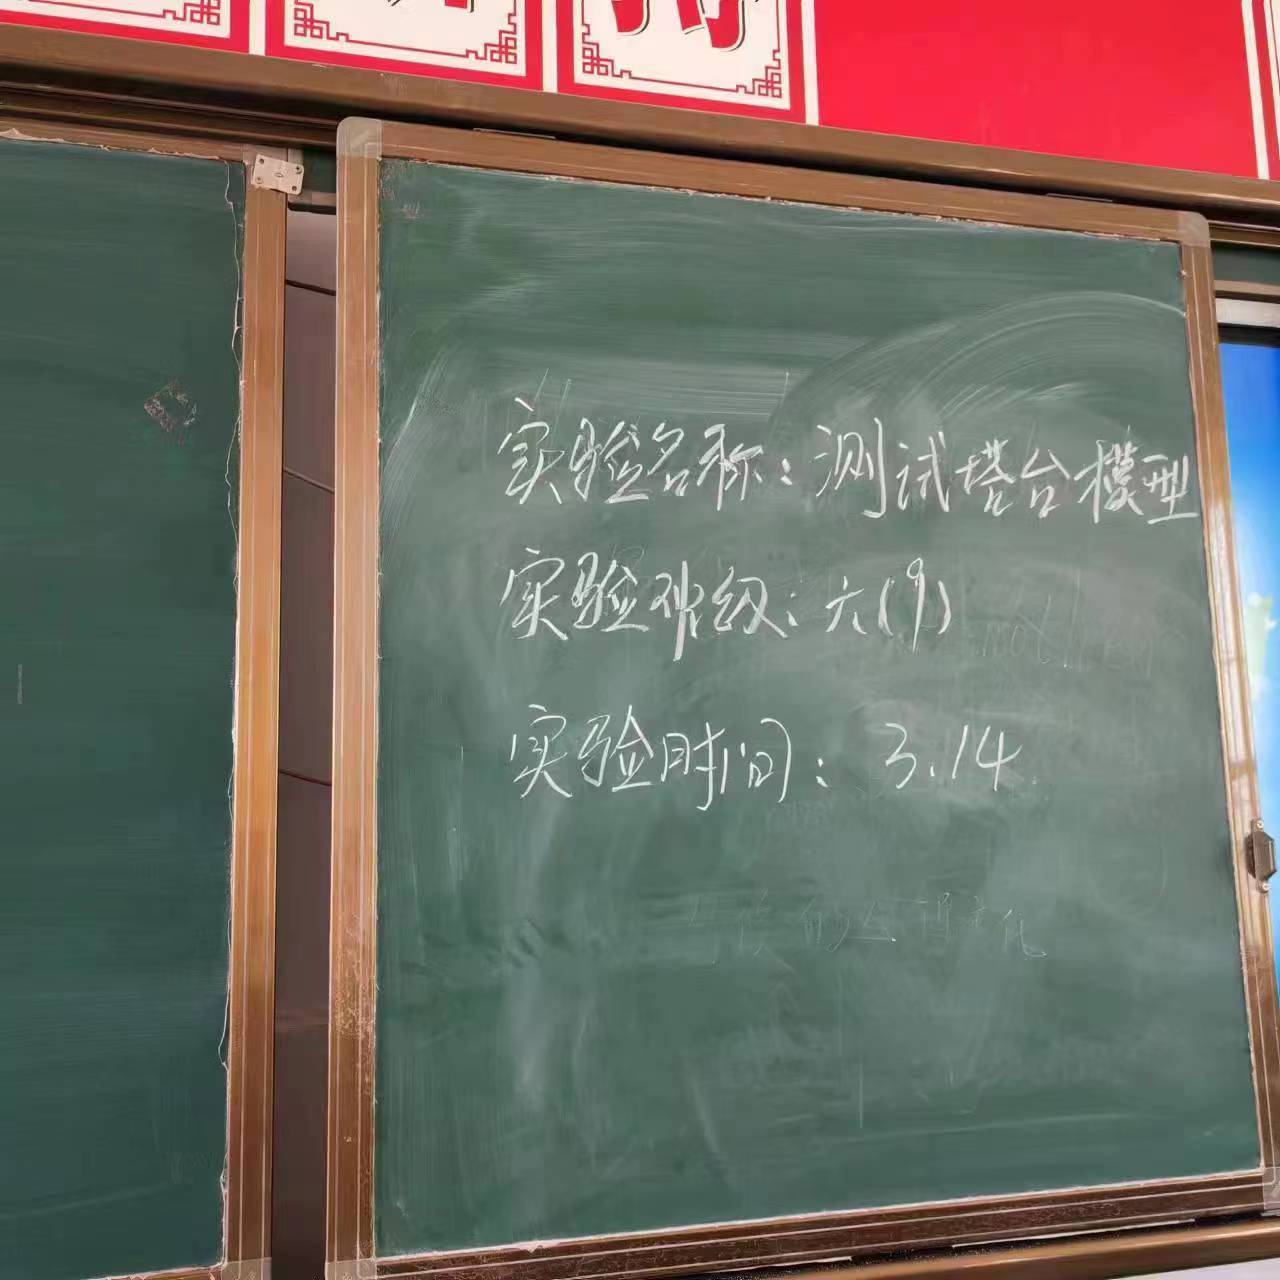 实验名称：测试塔台模型
实验班级：六(9)
实验时间：3.14